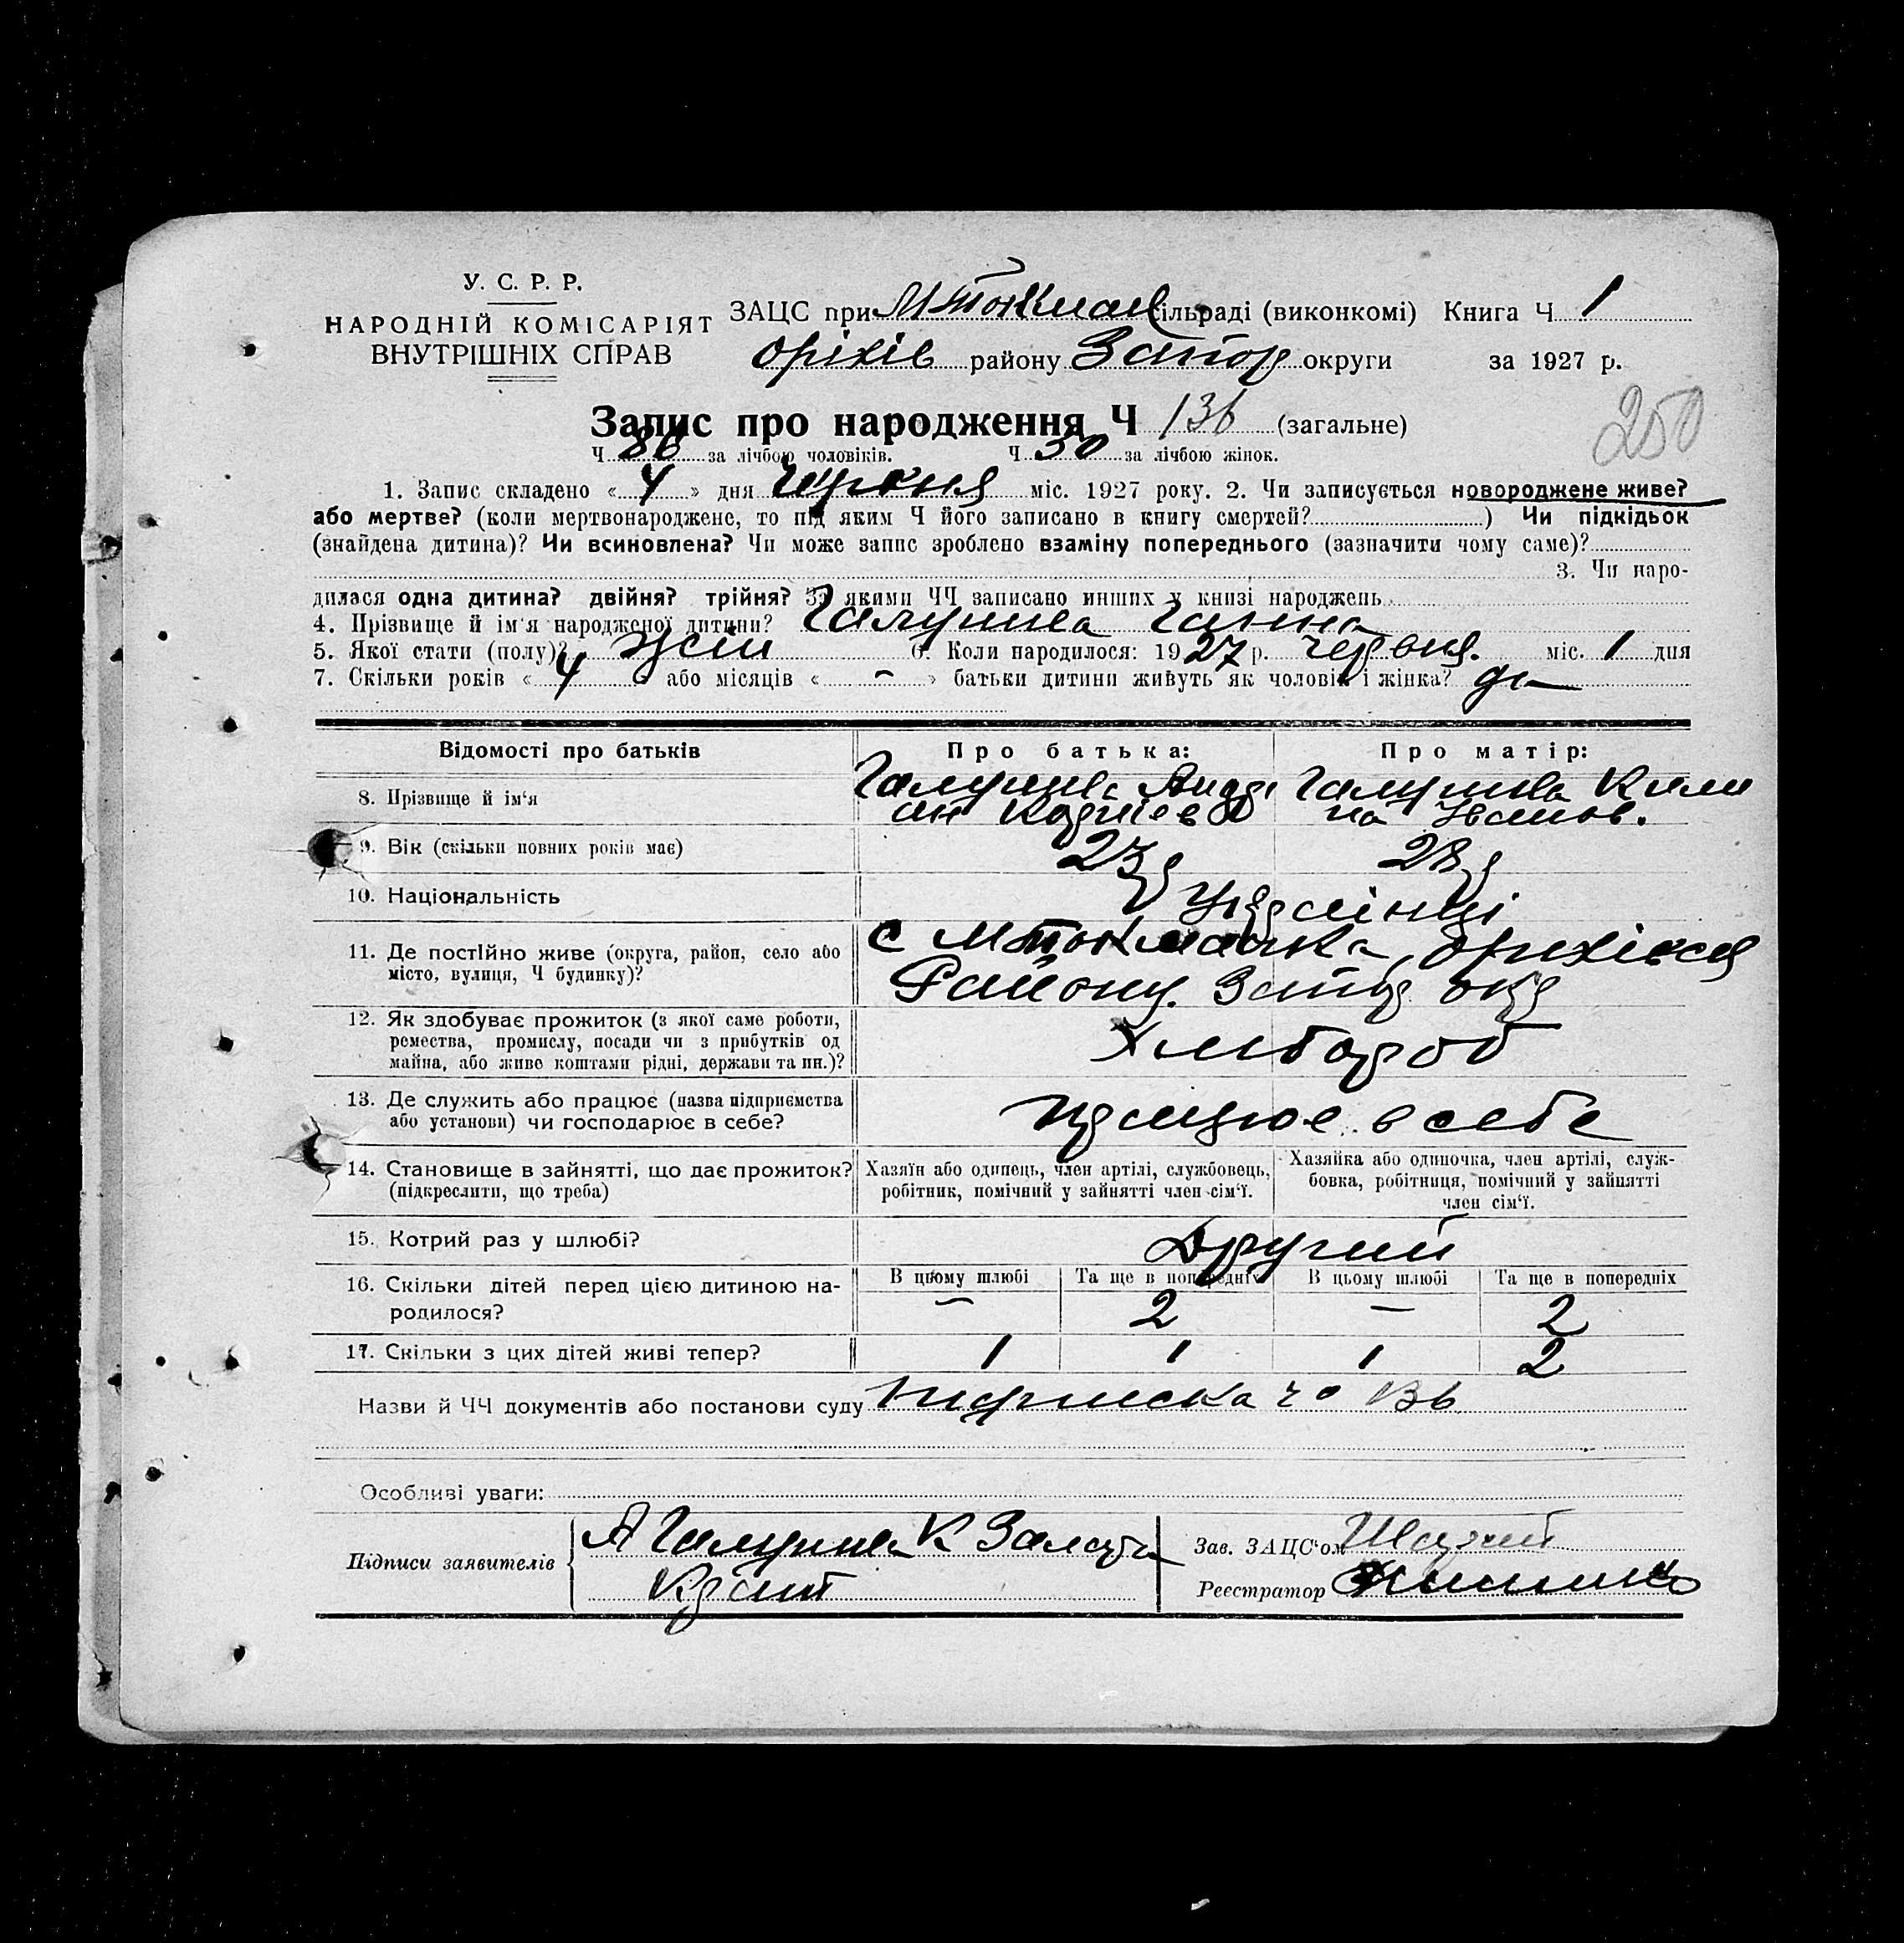 У. С. Р. Р.
НАРОДНІЙ КОМІСАРІЯТ
ВНУТРІШНІХ СПРАВ
ЗАЦС при М Токмац сільраді (виконкомі) Книга Ч 1
Оріхів району Запор округи за 1927 р.
Запис про народження Ч 136 (загальне)
250
Ч 86 за лічбою чоловіків. Ч 50 за лічбою жінок.
1. Запис складено « 4 » дня Червня міс. 1927 року. 2. Чи записується новороджене живе?
або мертве? (коли мертвонароджене, то під яким Ч його записано в книгу смертей?) Чи підкідьок
(знайдена дитина)? Чи всиновлена? Чи може запис зроблено взаміну попереднього (зазначити чому саме)?
3. Чи наро-
дилася одна дитина? двійня? трійня? За якими ЧЧ записано инших у книзі народжень
4. Прізвище й ім'я народженої дитини? Галушка Ганна
5. Якої стати (полу)? жін 6. Коли народилося: 1927 р. червня міс. 1 дня
7. Скільки років « 4 » або місяців « – » батьки дитини живуть як чоловік і жінка? да
Відомості про батьків Про батька: Про матір:
8. Прізвище й ім'я
9. Вік (скільки повних років має) 23 р 28 р
10. Національність Українці
11. Де постійно живе (округа, район, село або с М Токмачка, Оріхівск
місто, вулиця, Ч будинку)? Району Запор окр
12. Як здобуває прожиток (з якої саме роботи,
ремества, промислу, посади чи з прибутків од Хлібороб
майна, або живе коштами рідні, держави та ин.)?
13. Де служить або працює (назва підприємства
або установи) чи господарює в себе? працює в себе
14. Становище в зайнятті, що дає прожиток? Хазяїн або одинець, член артілі, службовець, Хазяйка або одиночка, член артілі, служ-
(підкреслити, що треба) робітник, помічний у зайнятті член сім'ї. бовка, робітниця, помічний у зайнятті
член сім'ї.
15. Котрий раз у шлюбі? Другий
16. Скільки дітей перед цією дитиною на- В цьому шлюбі Та ще в попередніх В цьому шлюбі Та ще в попередніх
родилося? – 2 – 2
17. Скільки з цих дітей живі тепер? 1 1 1 2
Назви й ЧЧ документів або постанови суду Підписка
Особливі уваги:
Підписи заявителів А Галушка К
Зав. ЗАЦС'ом
Реестратор